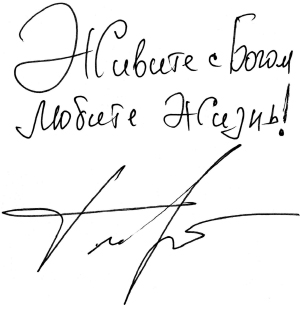 Живите с Богом
Любите Жизнь!